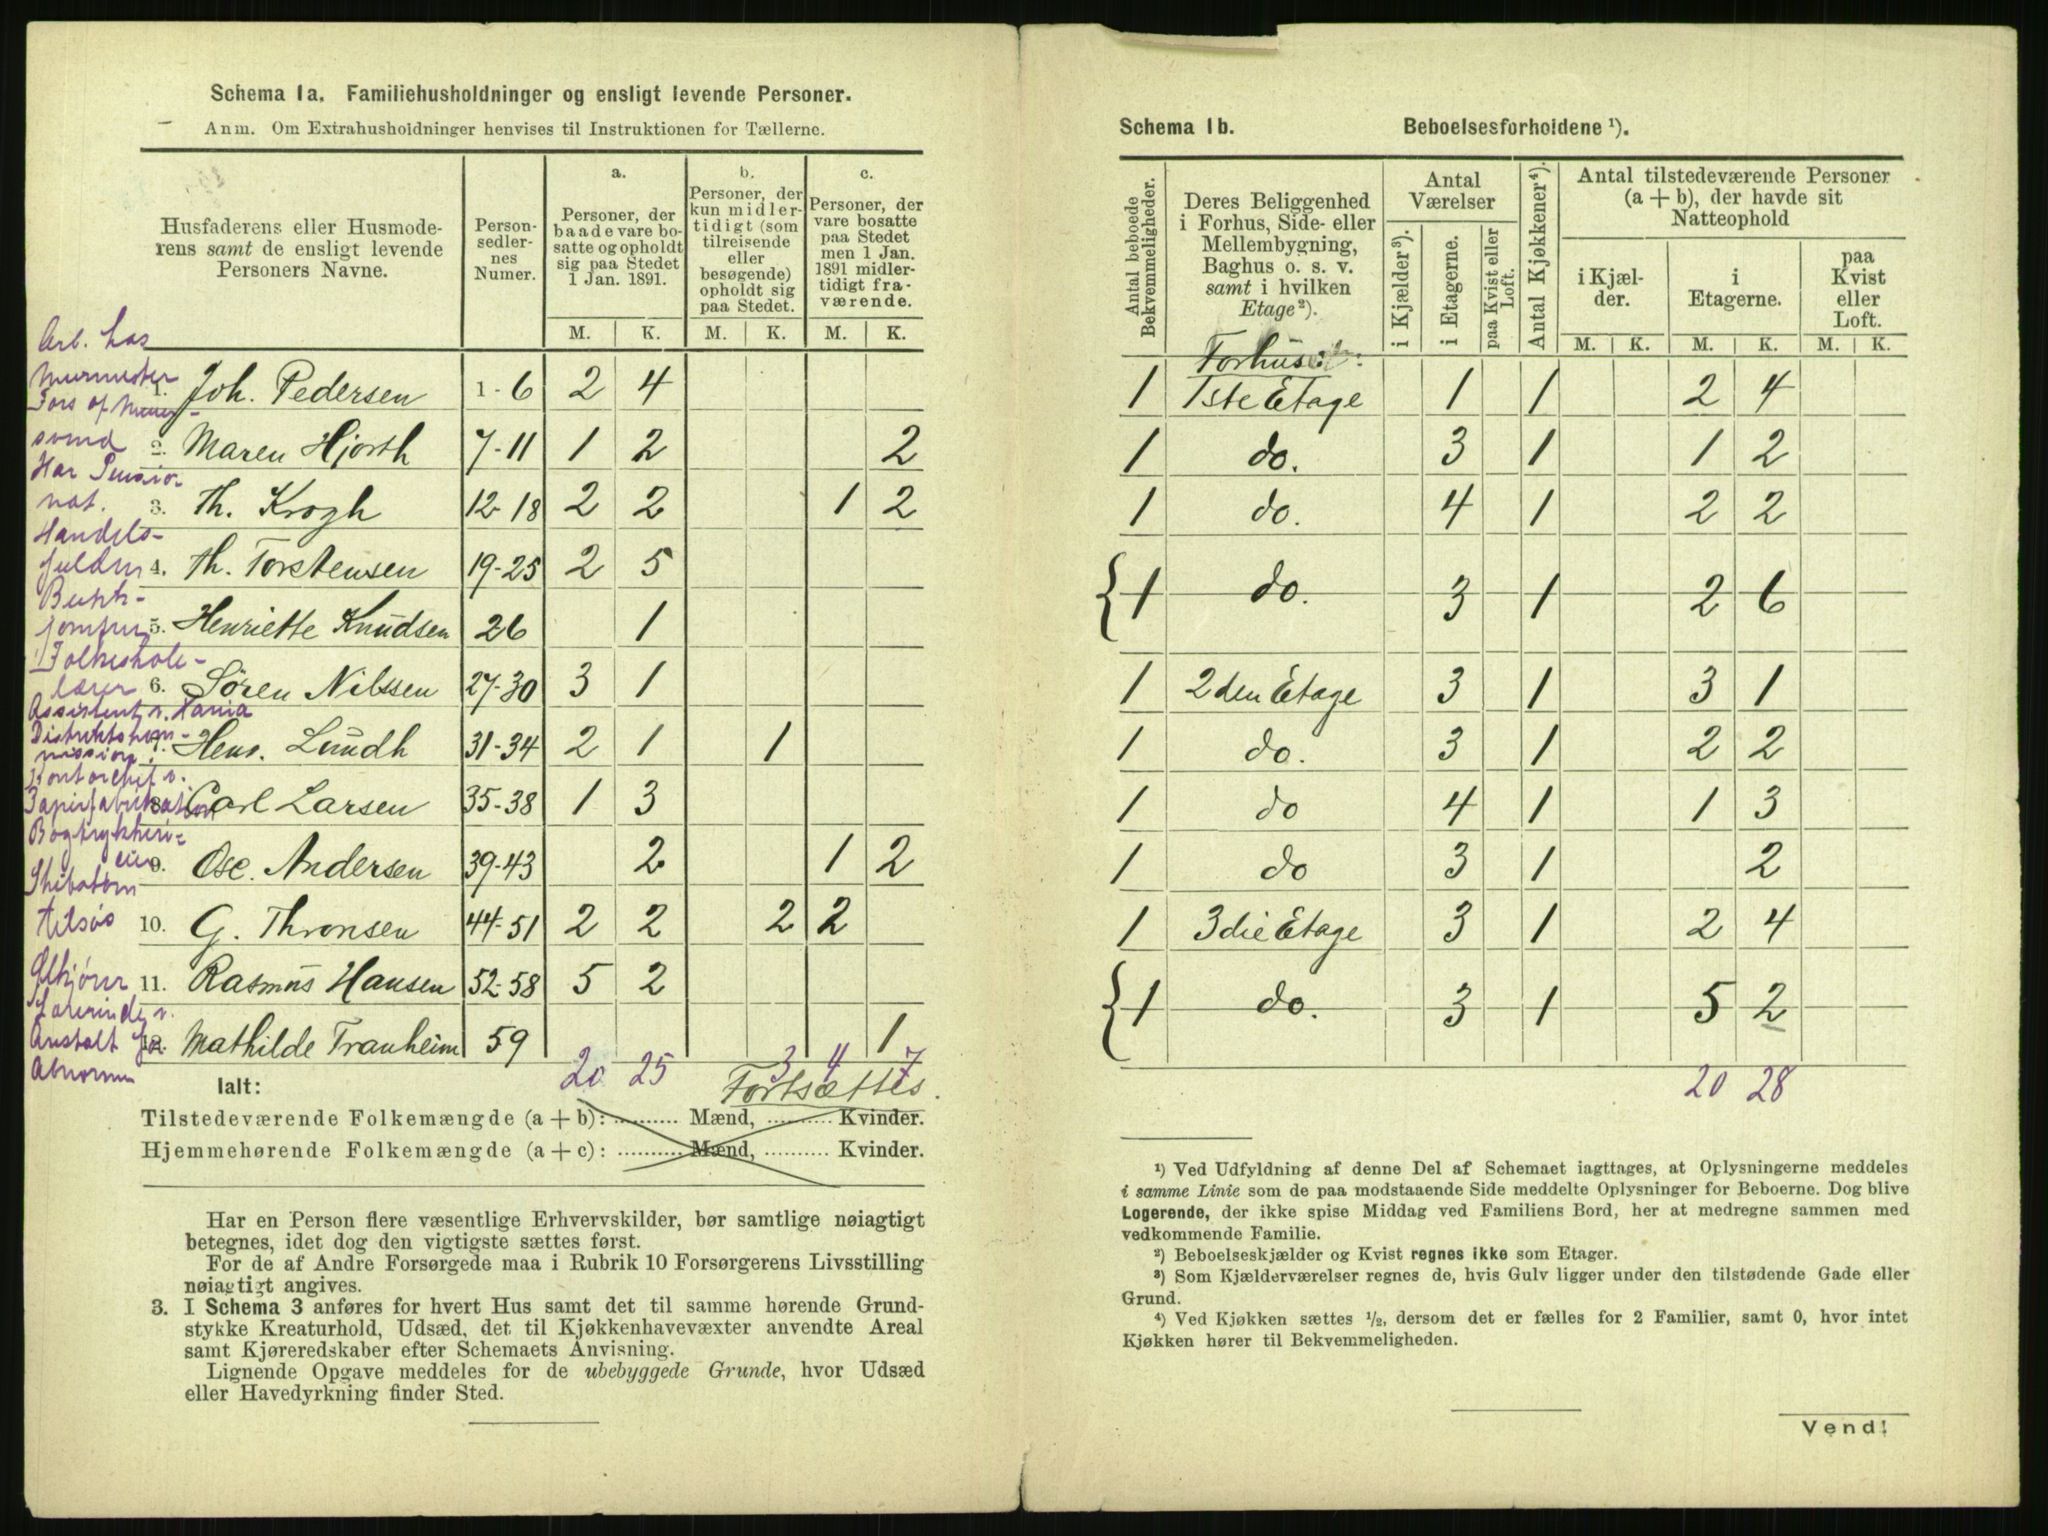 Schema 1a. Familiehusholdninger og ensligt levende Personer.
Anm. Om Extrahusholdninger henvises til Instruktionen for Tællerne.
Husfaderens eller Husmoderens samt de ensligt levende Personers Navne.
Personsedlernes Numer.
a. Personer, der baade vare bosatte og opholdt sig paa Stedet 1 Jan. 1891.
b. Personer, der kun midlertidigt (som tilreisende eller besøgende) opholdt sig paa Stedet.
c. Personer, der vare bosatte paa Stedet men 1 Jan. 1891 midlertidigt fraværende.
M. K. M. K. M. K.
Arb. hos
Murmester
1. Joh. Pedersen 1-6 2 4
Fors af Murer-
svend
2. Maren Hjorth 7-11 1 2 2
Har Pensio
nat.
3. Th. Krogh 12-18 2 2 1 2
Handels-
fuldm
4. Th. Torstensen 19-25 2 5
Butik-
jomfru
5. Henriette Knudsen 26 1
Folkeskole-
lærer
6. Søren Nilssen 27-30 3 1
Assistent v. Havne
Distriktskom-
mission
7. Hens. Lundh 31-34 2 1 1
Kontorchef v.
Papirfabrikation
8. Carl Larsen 35-38 1 3
Bogtrykkeri-
eier
9. Osc. Andersen 39-43 2 1 2
Skibstøm
tilsøs
10. G. Thronsen 44-51 2 2 2 2
Ølkjører
11. Rasmus Hansen 52-58 5 2
Lærerinde v.
Anstalt for
Abnorme
12. Mathilde Tranheim 59 1
Ialt: 20 25 3 4 7
Fortsættes.
Tilstedeværende Folkemængde (a + b): .......... Mænd, .......... Kvinder.
Hjemmehørende Folkemængde (a + c): .......... Mænd, .......... Kvinder.
Har en Person flere væsentlige Erhvervskilder, bør samtlige nøiagtigt
betegnes, idet dog den vigtigste sættes først.
For de af Andre Forsørgede maa i Rubrik 10 Forsørgerens Livsstilling
nøiagtigt angives.
3. I Schema 3 anføres for hvert Hus samt det til samme hørende Grund-
stykke Kreaturhold, Udsæd, det til Kjøkkenhavevæxter anvendte Areal
samt Kjøreredskaber efter Schemaets Anvisning.
Lignende Opgave meddeles for de ubebyggede Grunde, hvor Udsæd
eller Havedyrkning finder Sted.
Schema 1b. Beboelsesforholdene ¹).
Antal beboede Bekvemmeligheder.
Deres Beliggenhed i Forhus, Side- eller Mellembygning, Baghus o. s. v. samt i hvilken Etage²).
Antal Værelser
i Kjælder³).
i Etagerne.
paa Kvist eller Loft.
Antal Kjøkkener⁴).
Antal tilstedeværende Personer (a + b), der havde sit Natteophold
i Kjælder.
i Etagerne.
paa Kvist eller Loft.
M. K. M. K. M. K.
Forhuset:
1 1ste Etage 1 1 2 4
1 do. 3 1 1 2
1 do. 4 1 2 2
1 do. 3 1 2 6
1 2den Etage 3 1 3 1
1 do. 3 1 2 2
1 do 4 1 1 3
1 do 3 1 2
1 3die Etage 3 1 2 4
1 do. 3 1 5 2
20 28
¹) Ved Udfyldning af denne Del af Schemaet iagttages, at Oplysningerne meddeles
i samme Linie som de paa modstaaende Side meddelte Oplysninger for Beboerne. Dog blive
Logerende, der ikke spise Middag ved Familiens Bord, her at medregne sammen med
vedkommende Familie.
²) Beboelseskjælder og Kvist regnes ikke som Etager.
³) Som Kjælderværelser regnes de, hvis Gulv ligger under den tilstødende Gade eller
Grund.
⁴) Ved Kjøkken sættes ½, dersom det er fælles for 2 Familier, samt 0, hvor intet
Kjøkken hører til Bekvemmeligheden.
Vend!